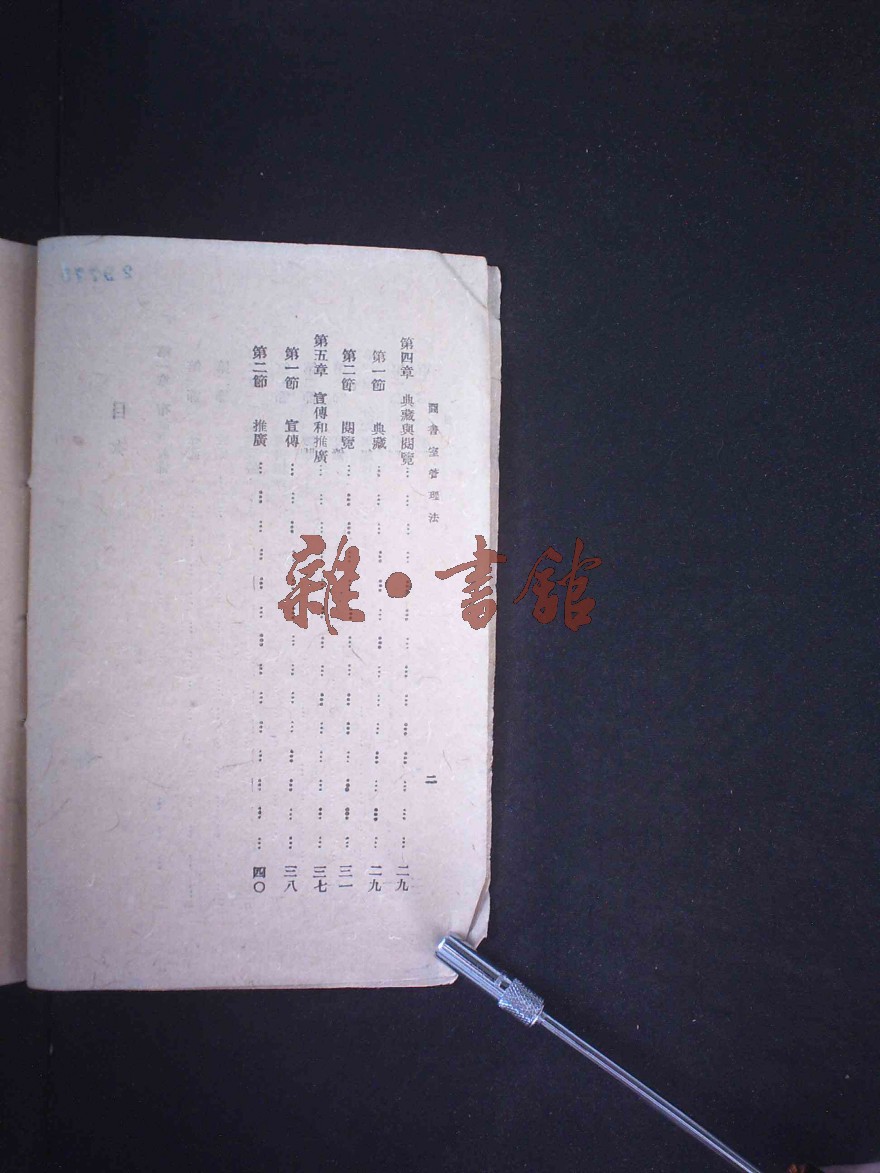 圖書室管理法
二
第四章 典藏與閱覽……二九
第一節 典藏……二九
第二節 閱覽……三一
第五章 宣傳和推廣……三七
第一節 宣傳……三八
第二節 推廣……四〇
目次
雜·書館